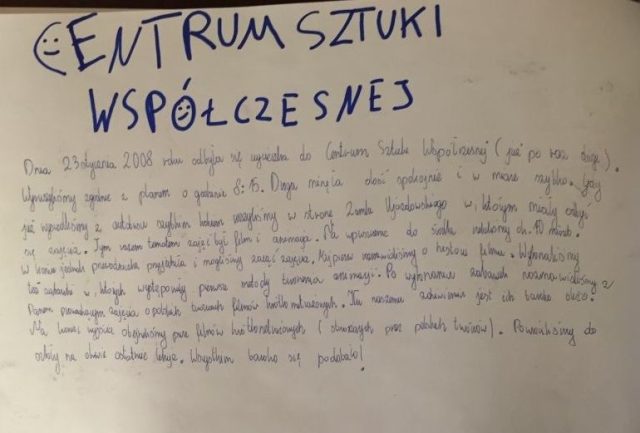 CENTRUM SZTUKI
WSPÓŁCZESNEJ
Dnia 23 stycznia 2008 roku odbyła się wycieczka do Centrum Sztuki Współczesnej (już po raz drugi).
Wyruszyliśmy zgodnie z planem o godzinie 8:15. Droga minęła dość spokojnie i w miarę szybko. Gdy
już wysiedliśmy z autokaru szybkim krokiem ruszyliśmy w stronę Zamku Ujazdowskiego w którym miały odbyć
się zajęcia. Tym razem tematem zajęć był film i animacja. Na wpuszczenie do środka czekaliśmy ok. 10 minut.
W końcu przyjechała i mogliśmy zacząć zajęcia. Najpierw rozmawialiśmy o historii filmu. Wykonaliśmy
też zabawki w których występowały pierwsze metody tworzenia animacji. Po wykonaniu zabawek rozmawialiśmy z
Panem prowadzącym zajęcia o polskich twórcach filmów krótkometrażowych. Ku naszemu zdziwieniu jest ich bardzo dużo.
Na koniec wyjścia obejrzeliśmy parę filmów krótkometrażowych (stworzonych przez polskich twórców). Powróciliśmy do
szkoły na dwie ostatnie lekcje. Wszystkim bardzo się podobało!